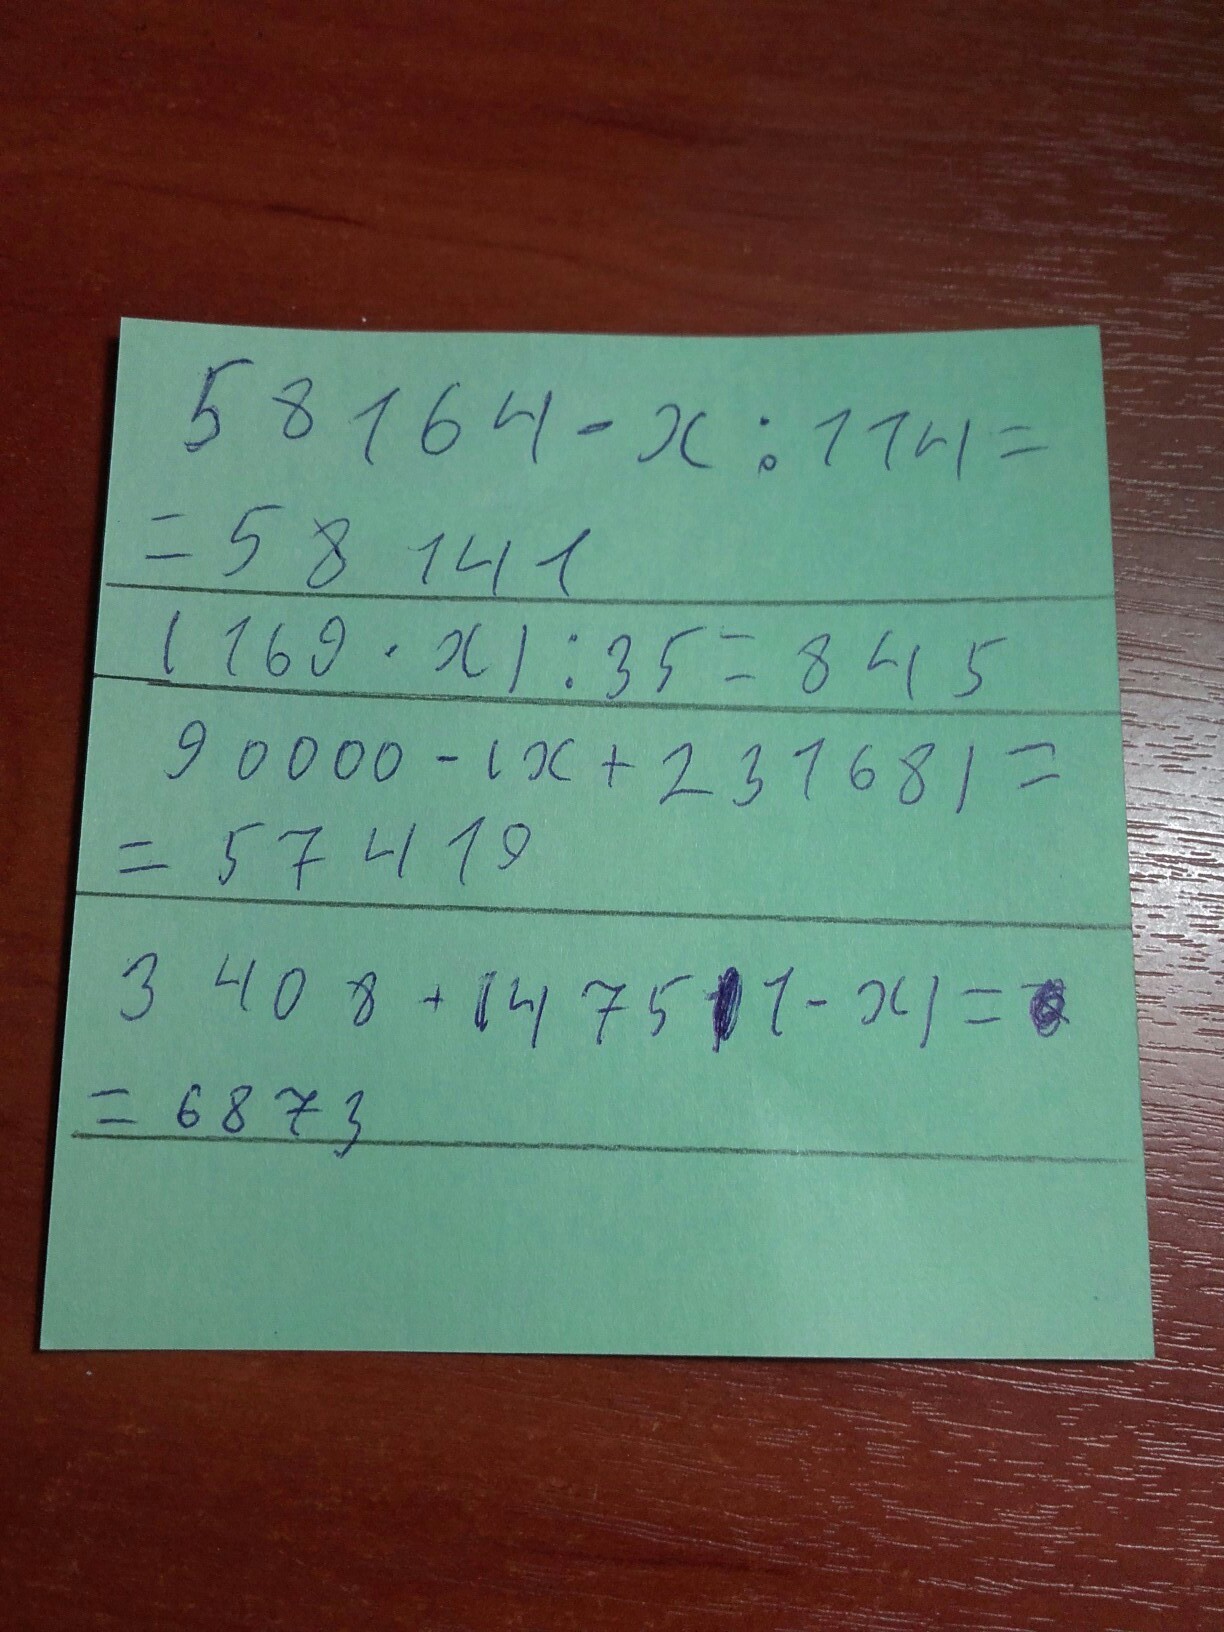 58164-x:114=
=58141
(169·x):35=845
90000-(x+23168)=
=57419
3408+(4751-x)=
=6873